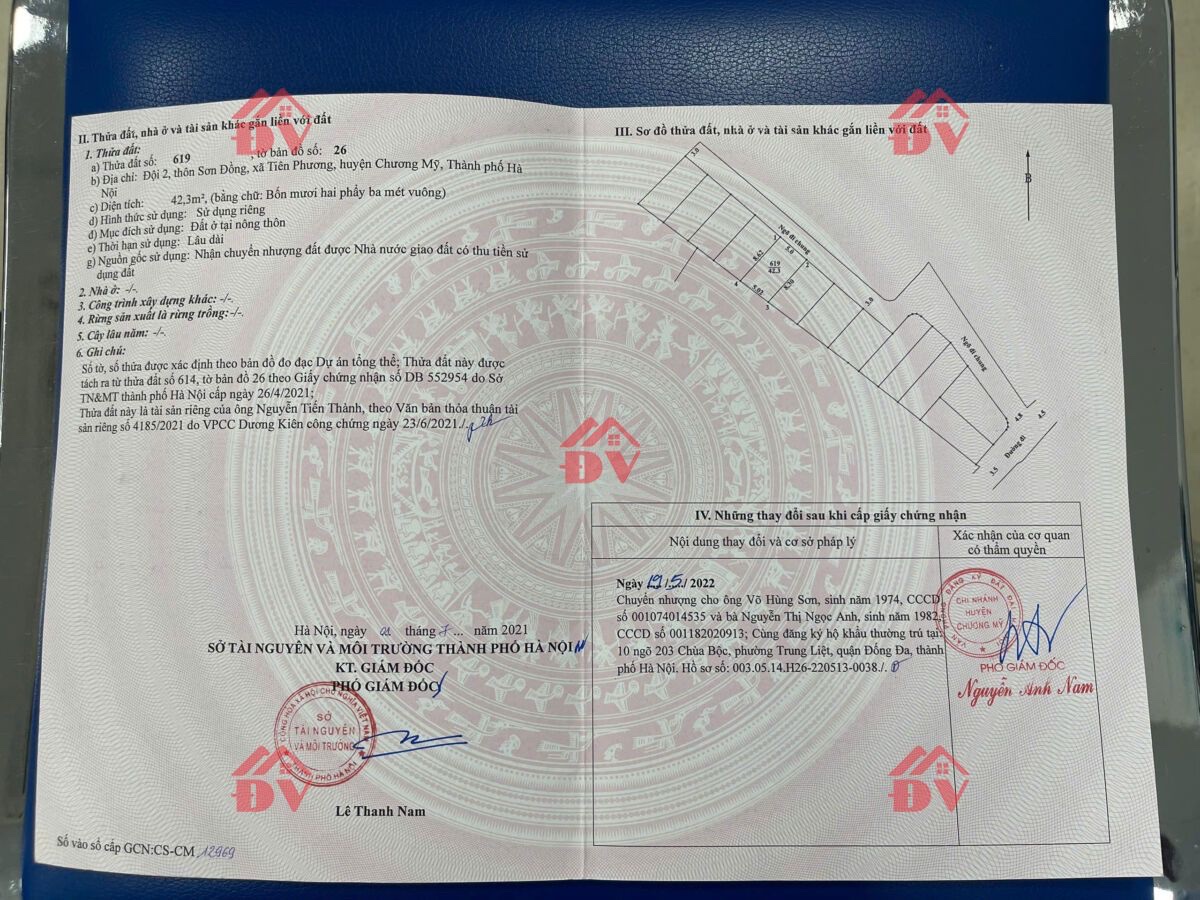 II. Thửa đất, nhà ở và tài sản khác gắn liền với đất
1. Thửa đất:
a) Thửa đất số: 619 , tờ bản đồ số: 26
b) Địa chỉ: Đội 2, thôn Sơn Đồng, xã Tiên Phương, huyện Chương Mỹ, Thành phố Hà
Nội
c) Diện tích: 42,3m², (bằng chữ: Bốn mươi hai phẩy ba mét vuông)
d) Hình thức sử dụng: Sử dụng riêng
đ) Mục đích sử dụng: Đất ở tại nông thôn
e) Thời hạn sử dụng: Lâu dài
g) Nguồn gốc sử dụng: Nhận chuyển nhượng đất được Nhà nước giao đất có thu tiền sử
dụng đất
2. Nhà ở: -/-.
3. Công trình xây dựng khác: -/-.
4. Rừng sản xuất là rừng trồng: -/-.
5. Cây lâu năm: -/-.
6. Ghi chú:
Số tờ, số thửa được xác định theo bản đồ đo đạc Dự án tổng thể; Thửa đất này được
tách ra từ thửa đất số 614, tờ bản đồ 26 theo Giấy chứng nhận số DB 552954 do Sở
TN&MT thành phố Hà Nội cấp ngày 26/4/2021;
Thửa đất này là tài sản riêng của ông Nguyễn Tiến Thành, theo Văn bản thỏa thuận tài
sản riêng số 4185/2021 do VPCC Dương Kiên công chứng ngày 23/6/2021./.
Hà Nội, ngày 01 tháng 7... năm 2021
SỞ TÀI NGUYÊN VÀ MÔI TRƯỜNG THÀNH PHỐ HÀ NỘI
KT. GIÁM ĐỐC
PHÓ GIÁM ĐỐC
CỘNG HÒA XÃ HỘI CHỦ NGHĨA VIỆT NAM
SỞ
TÀI NGUYÊN
VÀ MÔI TRƯỜNG
THÀNH PHỐ HÀ NỘI
Lê Thanh Nam
Số vào sổ cấp GCN:CS-CM 12969
III. Sơ đồ thửa đất, nhà ở và tài sản khác gắn liền với đất
B
3.0
Ngõ đi chung
1
5.0
2
8.62
619
42.3
8.30
4
5.02
3
3.0
Ngõ đi chung
4.8
4.5
Đường đi
3.5
IV. Những thay đổi sau khi cấp giấy chứng nhận
Nội dung thay đổi và cơ sở pháp lý
Xác nhận của cơ quan
có thẩm quyền
Ngày 19/5/ 2022
Chuyển nhượng cho ông Võ Hùng Sơn, sinh năm 1974, CCCD
số 001074014535 và bà Nguyễn Thị Ngọc Anh, sinh năm 1982,
CCCD số 001182020913; Cùng đăng ký hộ khẩu thường trú tại:
10 ngõ 203 Chùa Bộc, phường Trung Liệt, quận Đống Đa, thành
phố Hà Nội. Hồ sơ số: 003.05.14.H26-220513-0038./.
VĂN PHÒNG ĐĂNG KÝ ĐẤT ĐAI
CHI NHÁNH
HUYỆN
CHƯƠNG MỸ
PHÓ GIÁM ĐỐC
Nguyễn Anh Nam
ĐV
ĐV
ĐV
ĐV
ĐV